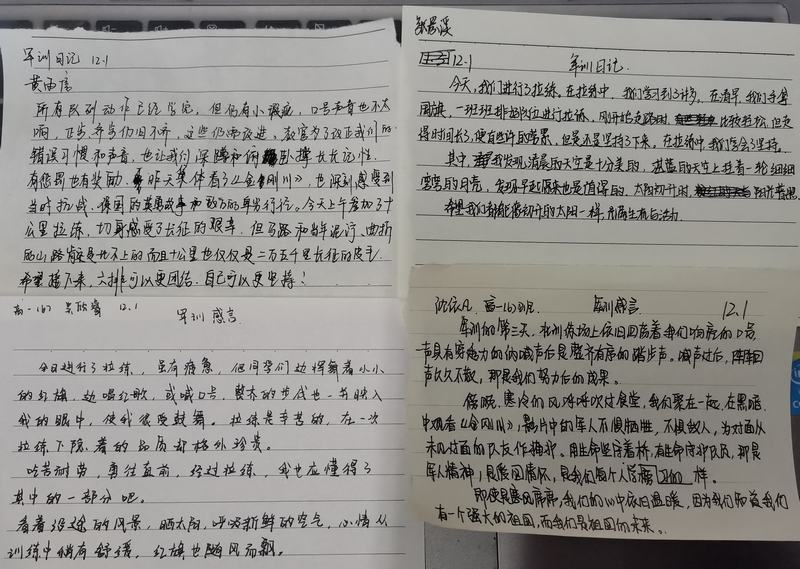 军训日记 12.1
黄雨
所有队列动作已经学完，但仍有小瑕疵，口号声音也不太
响，正步齐步仍旧不齐，这些仍需改进。教官为了改正我们的
错误习惯和声音，也让我们深蹲和俯卧撑长长记性。
有惩罚也有奖励，昨天集体看了《金刚川》，也深刻感受到
当时抗战、保国的英勇故事和
今天上午参加了十
公里拉练，切身感受了长征的艰辛。但马路和当年泥泞、曲折
的山路肯定是比不上的而且十公里也仅仅是二万五千里长征的皮毛。
希望接下来，六排可以更团结，自己可以更坚持！
邹
12.1 军训日记
今天，我们进行了拉练，在拉练中，我们学习到了许多。在清早，我们手拿
国旗，一班班排好队伍进行拉练，刚开始走路时，比较轻松，但走
得时间长了，便有些许的劳累，但是还是坚持了下来，在拉练中我们学会了坚持。
其中，我发现清晨的天空是十分美的，湛蓝的天空上挂着一轮细细
弯弯的月亮，发现早起原来也是值得的，太阳初升时，阳光普照
希望我们都能像初升的太阳一样，充满生机与活力。
高一(6) 吴欣 12.1
军训感言
今日进行了拉练，虽有疲惫，但同学们边挥舞着小小
的红旗，边唱红歌，或喊口号，整齐的步伐也一并映入
我的眼中，使我很受鼓舞。拉练是辛苦的，在一次
拉练下隐着的品质却格外珍贵。
吃苦耐劳，勇往直前，经过拉练，我也应懂得了
其中的一部分吧。
看着沿途的风景，晒太阳，呼吸新鲜的空气，心情从
训练中稍有舒缓，红旗也随风而飘。
沈依凡 高一(6)班 军训感言 12.1
军训的第三天，训练场上依旧回荡着我们响亮的口号
声具有穿透力的呐喊声后是整齐有序的踏步声。喊声过后，回
声久久不散，那是我们努力后的成果。
傍晚，寒冷的风呼呼吹过食堂，我们聚在一起，在黑暗
中观看《金刚川》，影片中的军人不惧牺牲，不惧敌人，为对面从
未见过面的队友作掩护。用生命坚守着桥，用生命守护队友，那是
军人精神，是爱国情怀，是我们每个人学习 榜样。
即使是寒风席席，我们的心中依旧温暖，因为我们知道我们
有一个强大的祖国，而我们是祖国的未来。